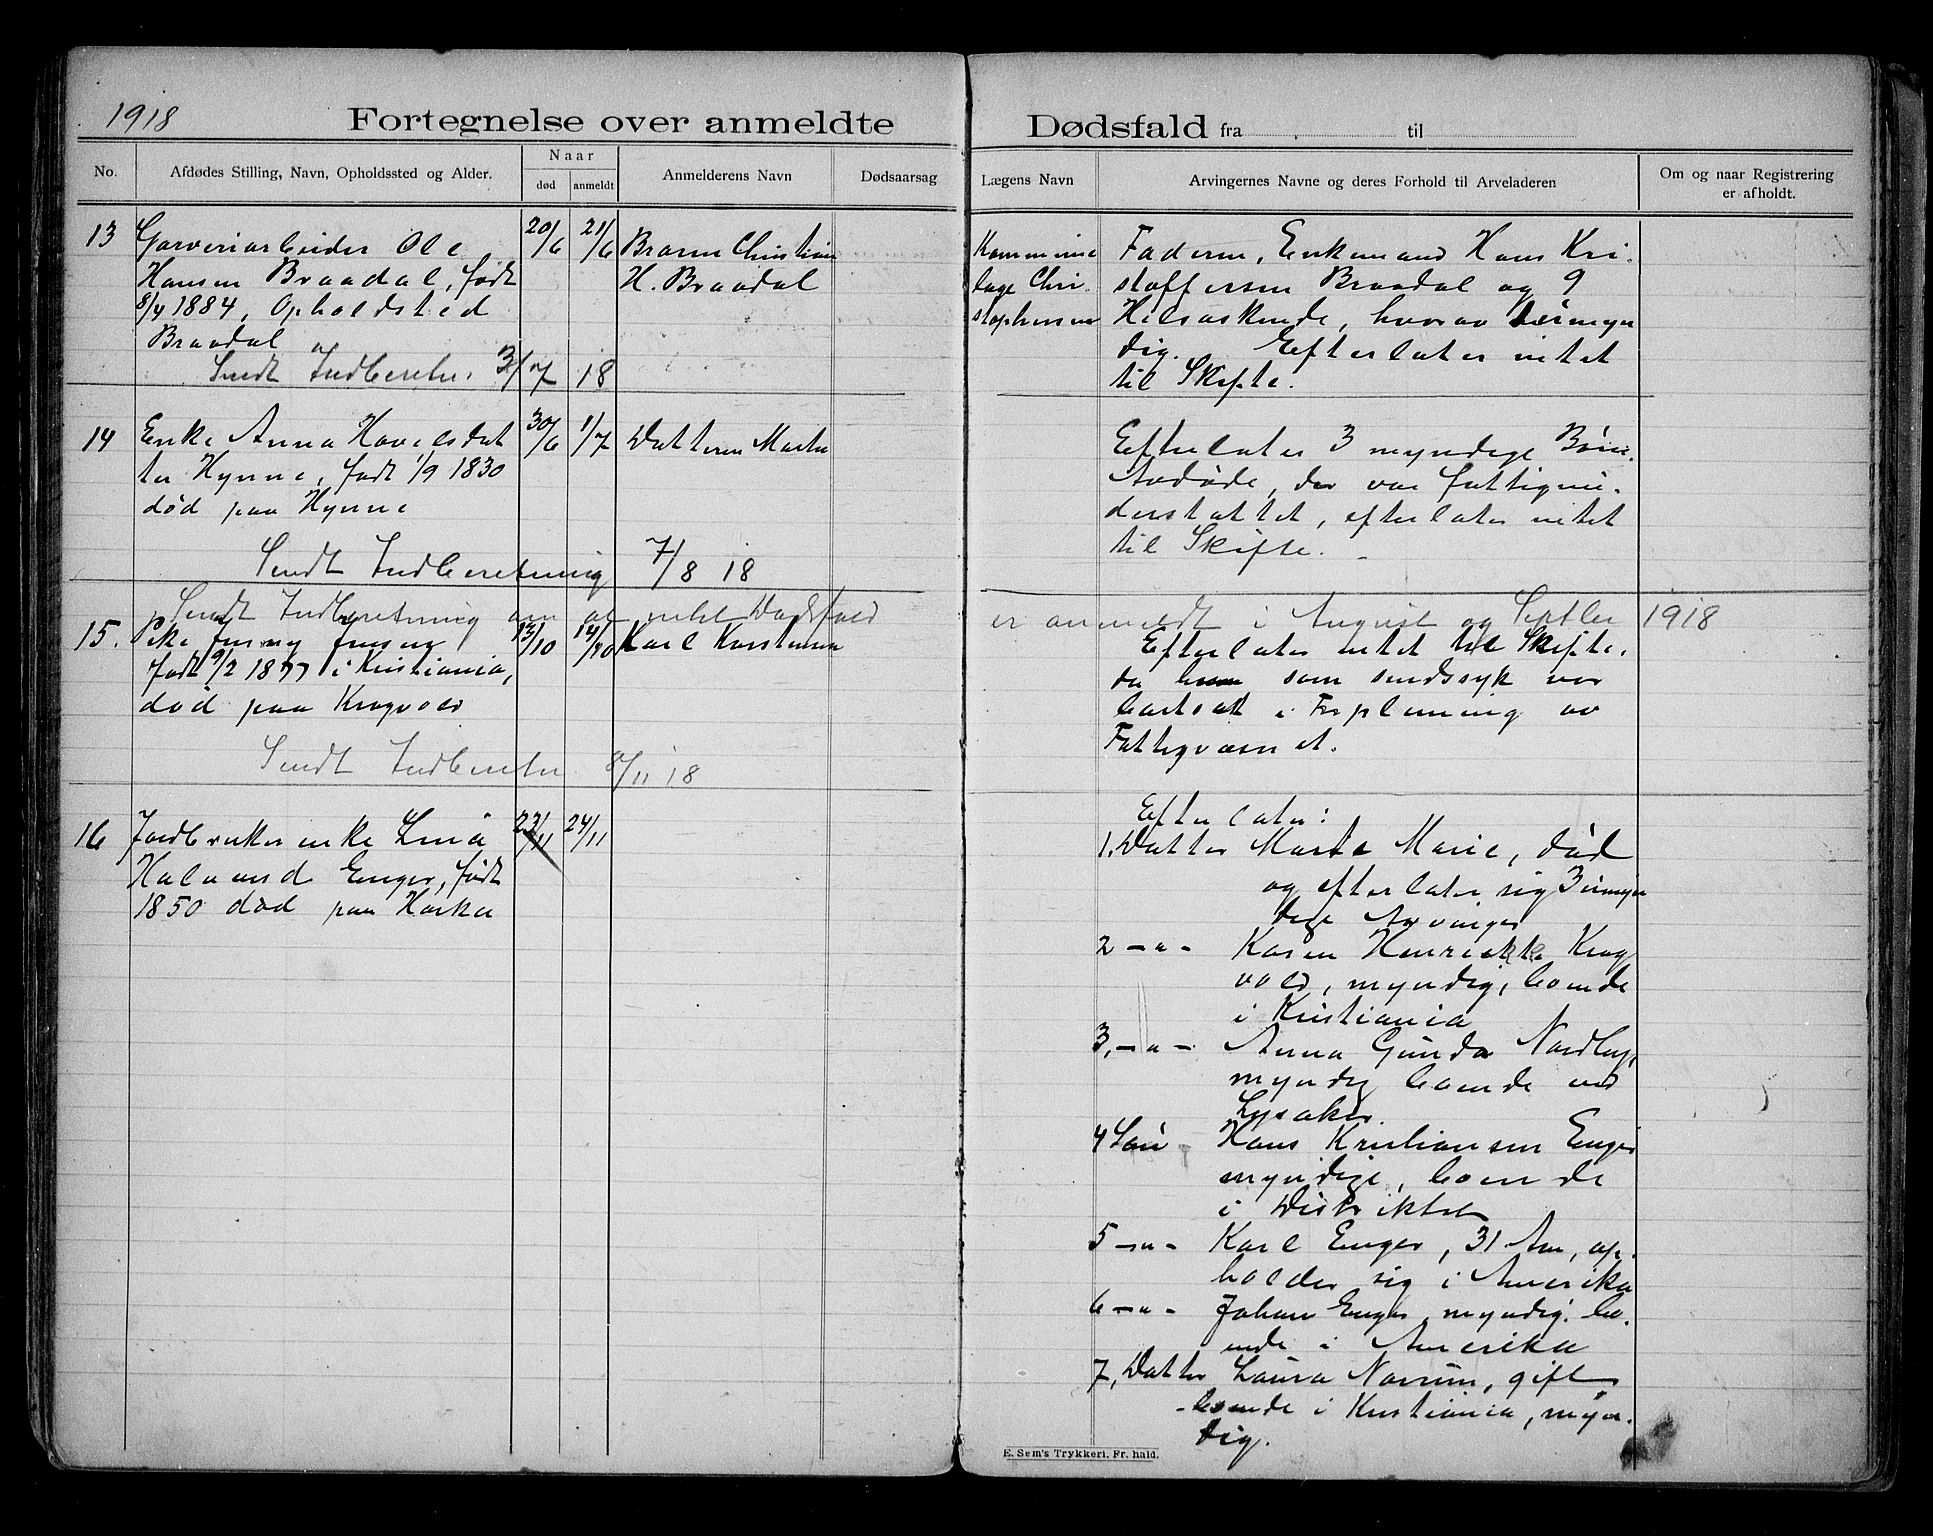 1918
Fortegnelse over anmeldte Dødsfald fra til
No.
Afdødes Stilling, Navn, Opholdssted og Alder.
Naar
død
anmeldt
Anmelderens Navn
Dødsaarsag
Lægens Navn
Arvingernes Navne og deres Forhold til Arveladeren
Om og naar Registrering
er afholdt.
13 Garveriarbeider Ole 20/6 21/6
Hansen Braadal, født
8/4 1884, Opholdsted
Braadal
Broren Christian
H. Braadal
Kommune
læge Chri
stophersen
Faderen, Enkemand Hans Kri-
stoffersen Braadal og 9
Helsøskende, hvorav 1 umyn
dig. Efterlater intet
til Skifte.
Sendt Indberetn. 3/7 18
14 Enke Anna Hovelsdat 30/6 1/7 Datteren Marte
ter Hynne, født 1/9 1830
død paa Hynne
Efterlater 3 myndige Børn.
Avdøde, der var fattigun-
derstøttet, efterlater intet
til Skifte.
Sendt Indberetning 7/8 18
Sendt Indberetning om at intet Dødsfald er anmeldt i August og Septbr 1918
15. Pike Jenny Jensen 13/10 14/10 Karl Karstensen
født 9/2 1877 i Kristiania,
død paa Krogvold
Efterlater intet til Skifte,
da hun som sindssyk var
bortsat i Forpleining av
Fattigvæsenet.
Sendt Indberetn 8/11 18
16 Jordbrukerenke Lina 22/11 24/11
Halvord Enger, født
1850 død paa Horka
Efterlater:
1. Datter Marte Marie, død
og efterlater sig 3 umyn
dige Arvinger
2 —"— Karen Henrikke Krog
vold, myndig, boende
i Kristiania
3, —"— Anna Gunda Nordby,
myndig boende ved
Lysaker
4 Søn Hans Kristiansen Enger
myndige, boende
i Distriktet
5 —"— Karl Enger, 31 Aar, op-
holder sig i Amerika
6 —"— Johan Enger myndig. bo-
ende i Amerika
7, Datter Laura Norum, gift
boende i Kristiania, myn-
dig.
E. Sem's Trykkeri, Fr.hald.